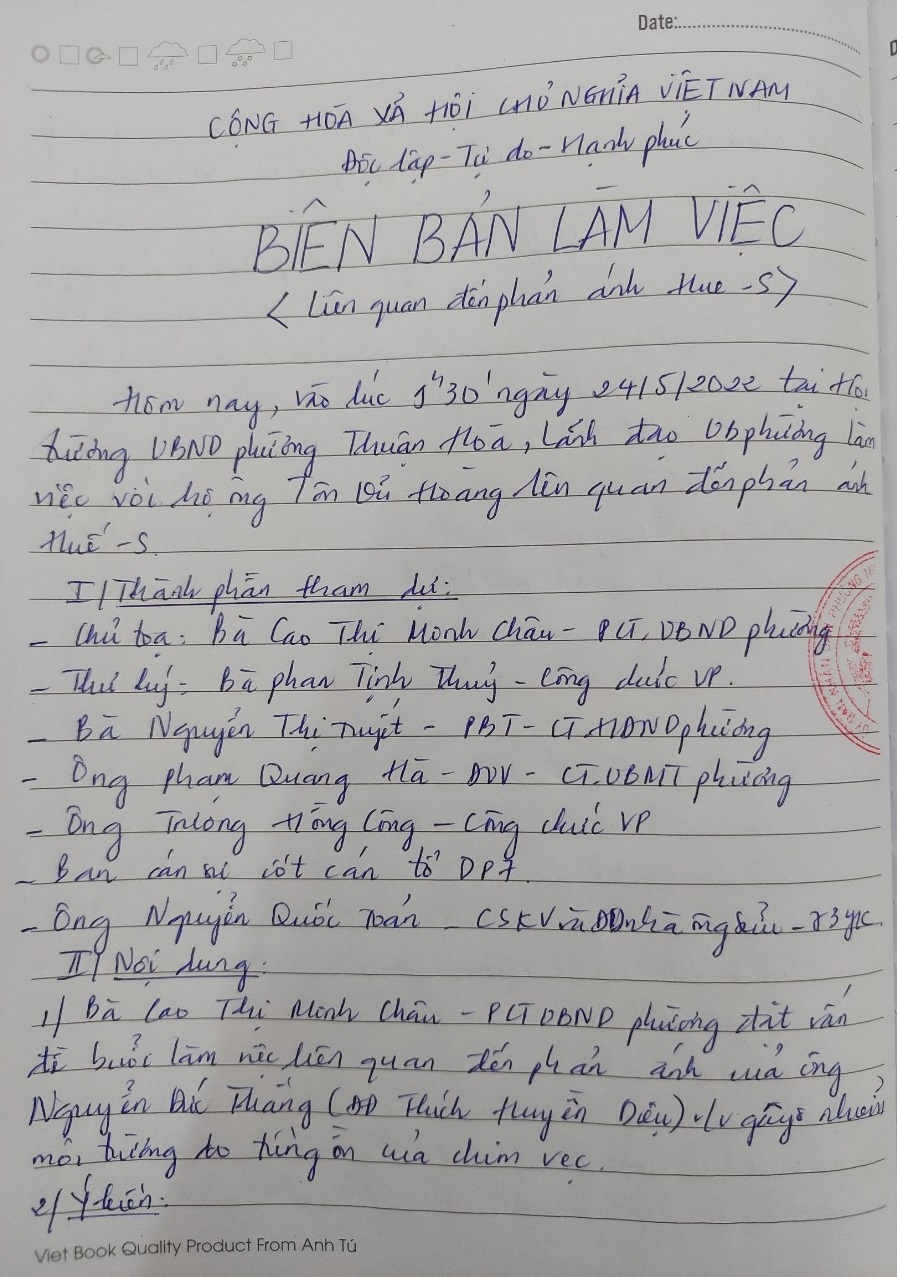 Date:
CỘNG HÒA XÃ HỘI CHỦ NGHĨA VIỆT NAM
Độc lập - Tự do - Hạnh phúc
BIÊN BẢN LÀM VIỆC
< Liên quan đến phản ánh Hue - S >
Hôm nay, vào lúc 9h30' ngày 24/5/2022 tại Hội
trường UBND phường Thuận Hoà, Lãnh đạo Ub phường làm
việc với hộ ông Tôn Hoàng liên quan đến phản ánh
Huế - S.
I/ Thành phần tham dự:
- Chủ tọa: Bà Cao Thị Minh Châu - PCT. UBND phường
- Thư ký: Bà Phan Tịnh Thuỷ - Công chức VP.
- Bà Nguyễn Thị Tuyết - PBT - CT HĐND phường
- Ông Phạm Quang Hà - ĐUV - CT. UBMT phường
- Ông Trương Hồng Công - Công chức VP
- Ban cán sự cốt cán tổ DP7
- Ông Nguyễn Quốc Toán - CSKV và ĐD nhà ông
II/ Nội dung:
1/ Bà Cao Thị Minh Châu - PCT UBND phường đặt vấn
đề buổi làm việc liên quan đến phản ánh của ông
Nguyễn Đức Thắng (ĐĐ Thích Huyền Diệu) v/v gây ô nhiễm
môi trường do tiếng ồn của chim vẹt.
2/ Ý kiến:
Viet Book Quality Product From Anh Tú